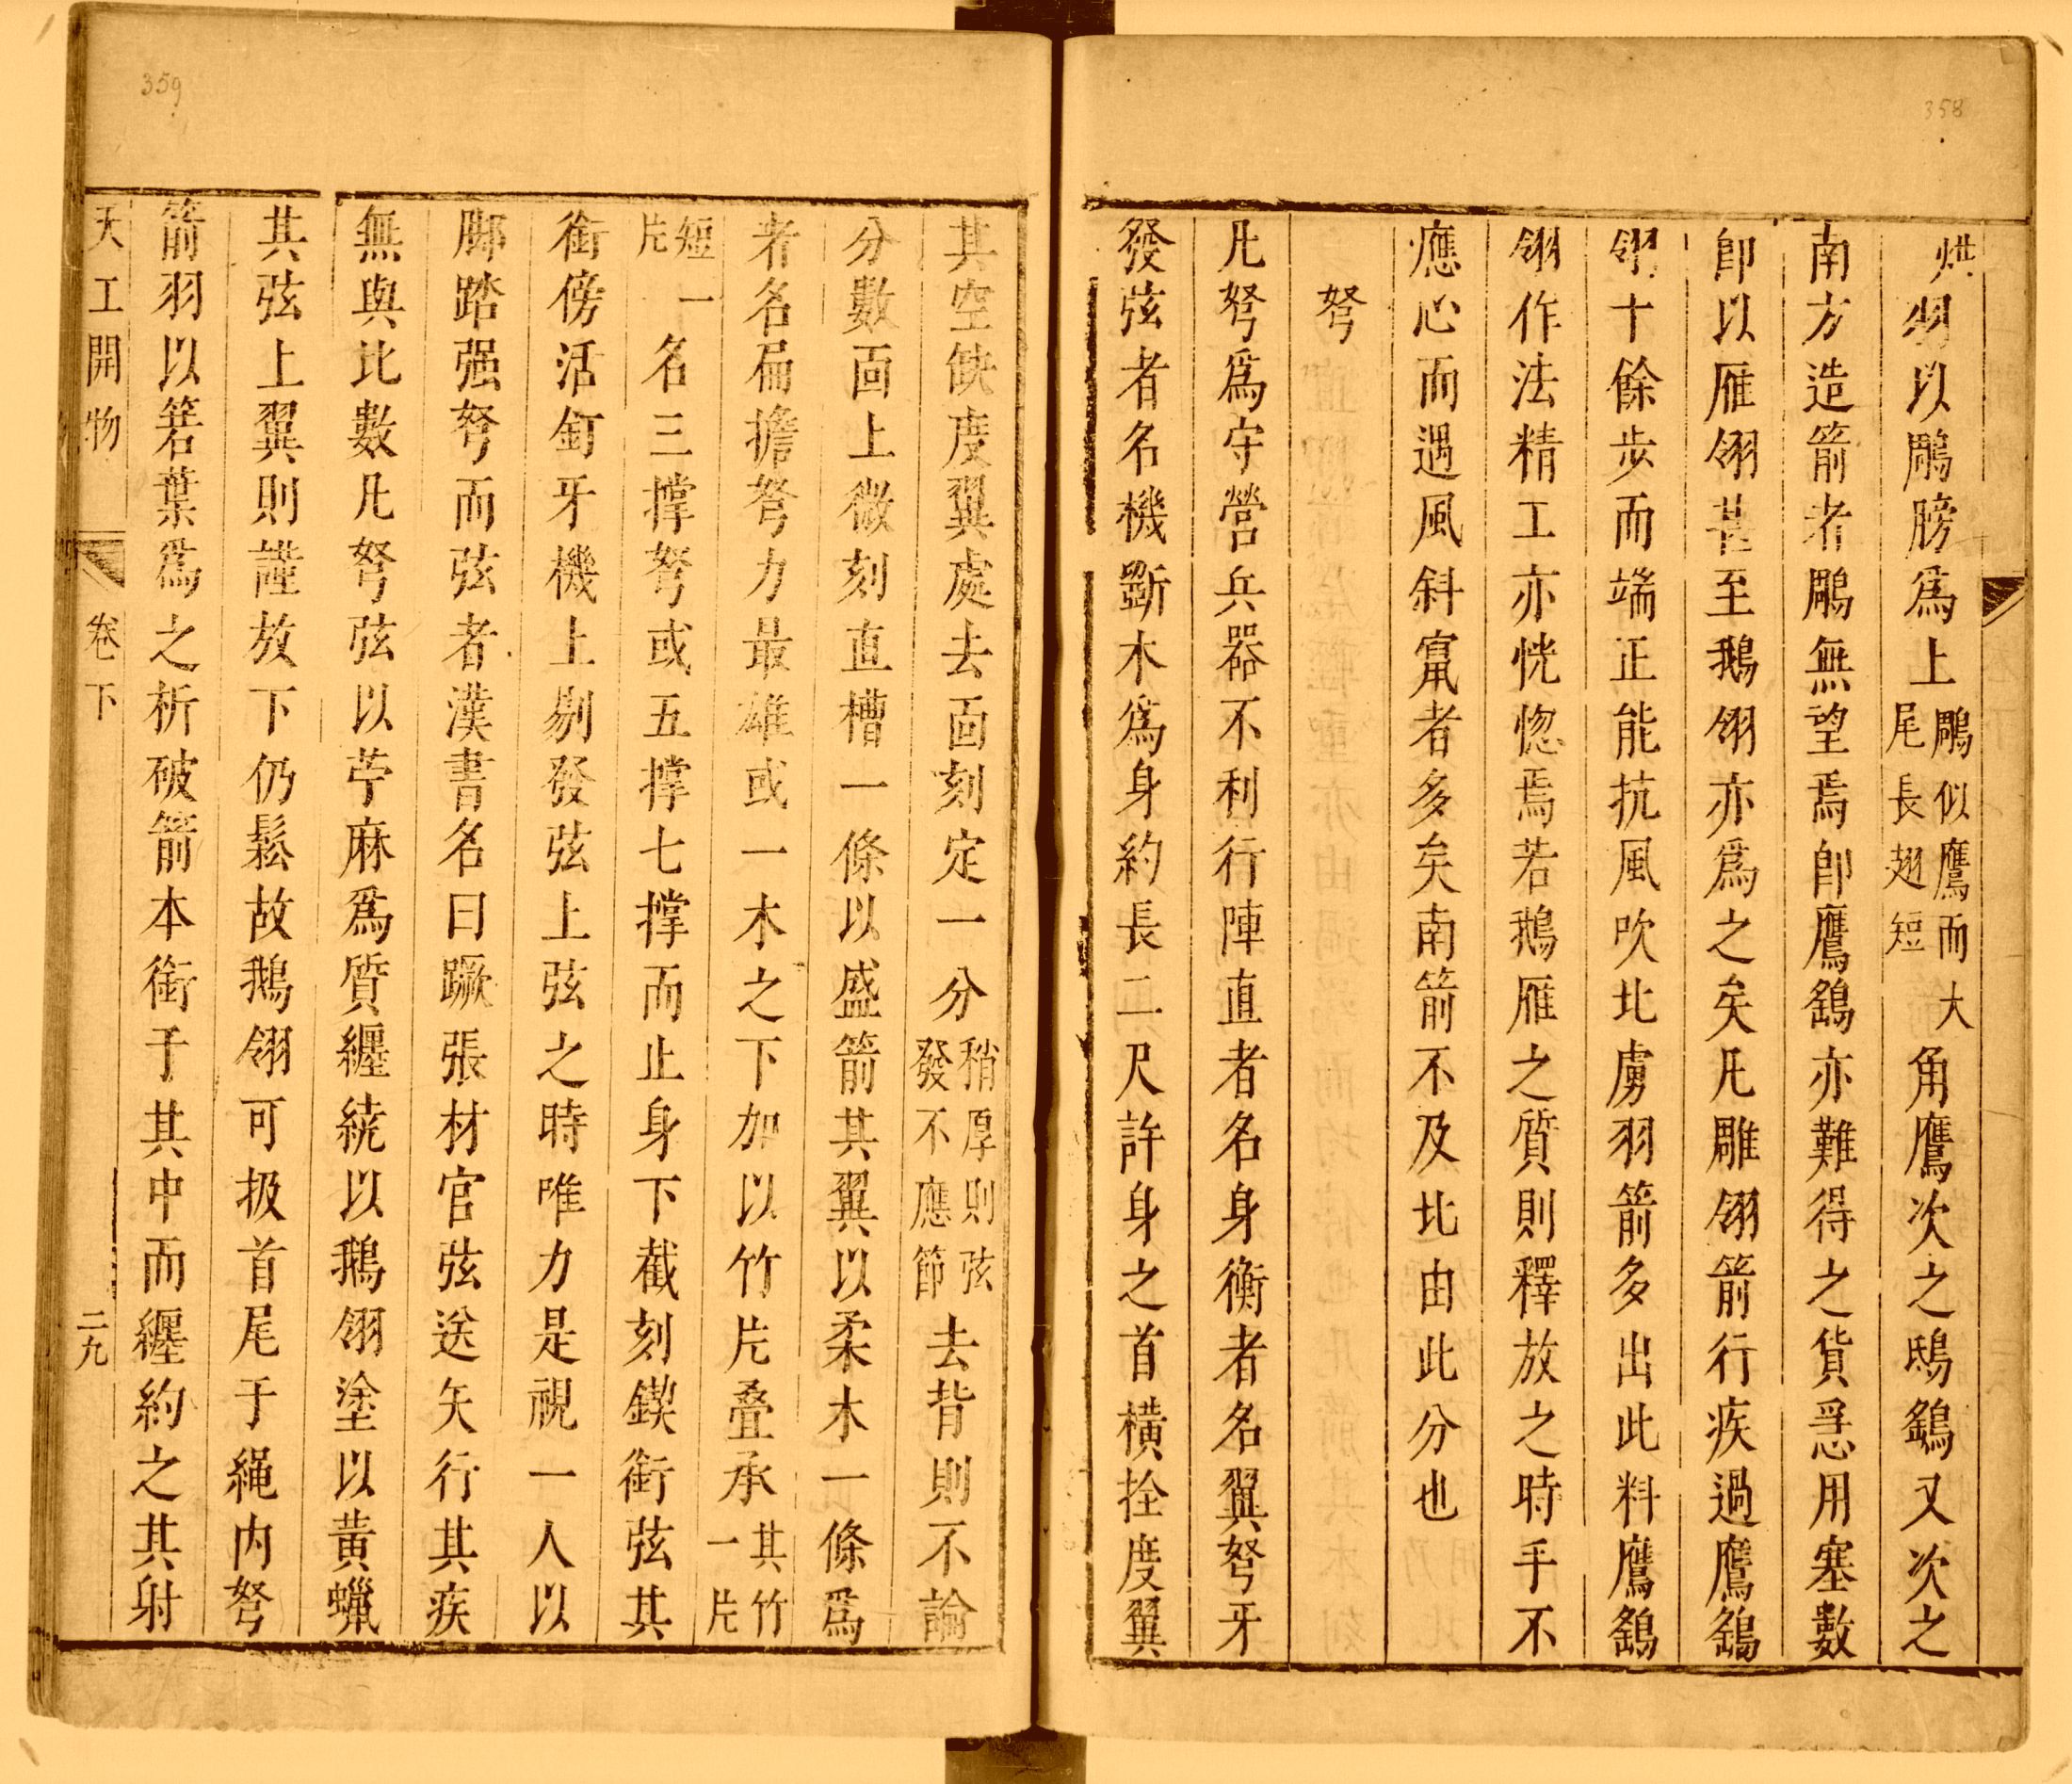 358
烘羽以鵰膀爲上鵰似鷹而大尾長翅短角鷹次之鴟鷂又次之
南方造箭者鵰無望焉卽鷹鷂亦難得之貨急用塞數
卽以雁翎甚至鵝翎亦爲之矣凡雕翎箭行疾過鷹鷂
翎十餘步而端正能抗風吹北虜羽箭多出此料鷹鷂
翎作法精工亦恍惚焉若鵝雁之質則釋放之時手不
應心而遇風斜竄者多矣南箭不及北由此分也
弩
凡弩爲守營兵器不利行陣直者名身衡者名翼弩牙
發弦者名機斲木爲身約長二尺許身之首橫拴度翼
359
其空缺度翼處去面刻定一分稍厚則弦發不應節去背則不論
分數面上微刻直槽一條以盛箭其翼以柔木一條爲
者名扁擔弩力最雄或一木之下加以竹片叠承其竹一片
短片一名三撑弩或五撑七撑而止身下截刻鍥銜弦其
銜傍活釘牙機上剔發弦上弦之時唯力是視一人以
脚踏强弩而弦者漢書名曰蹶張材官弦送矢行其疾
無與比數凡弩弦以苧麻爲質纏繞以鵝翎塗以黃蠟
其弦上翼則謹放下仍鬆故鵝翎可扱首尾于繩內弩
箭羽以箬葉爲之析破箭本銜于其中而纏約之其射
天工開物 卷下 二九